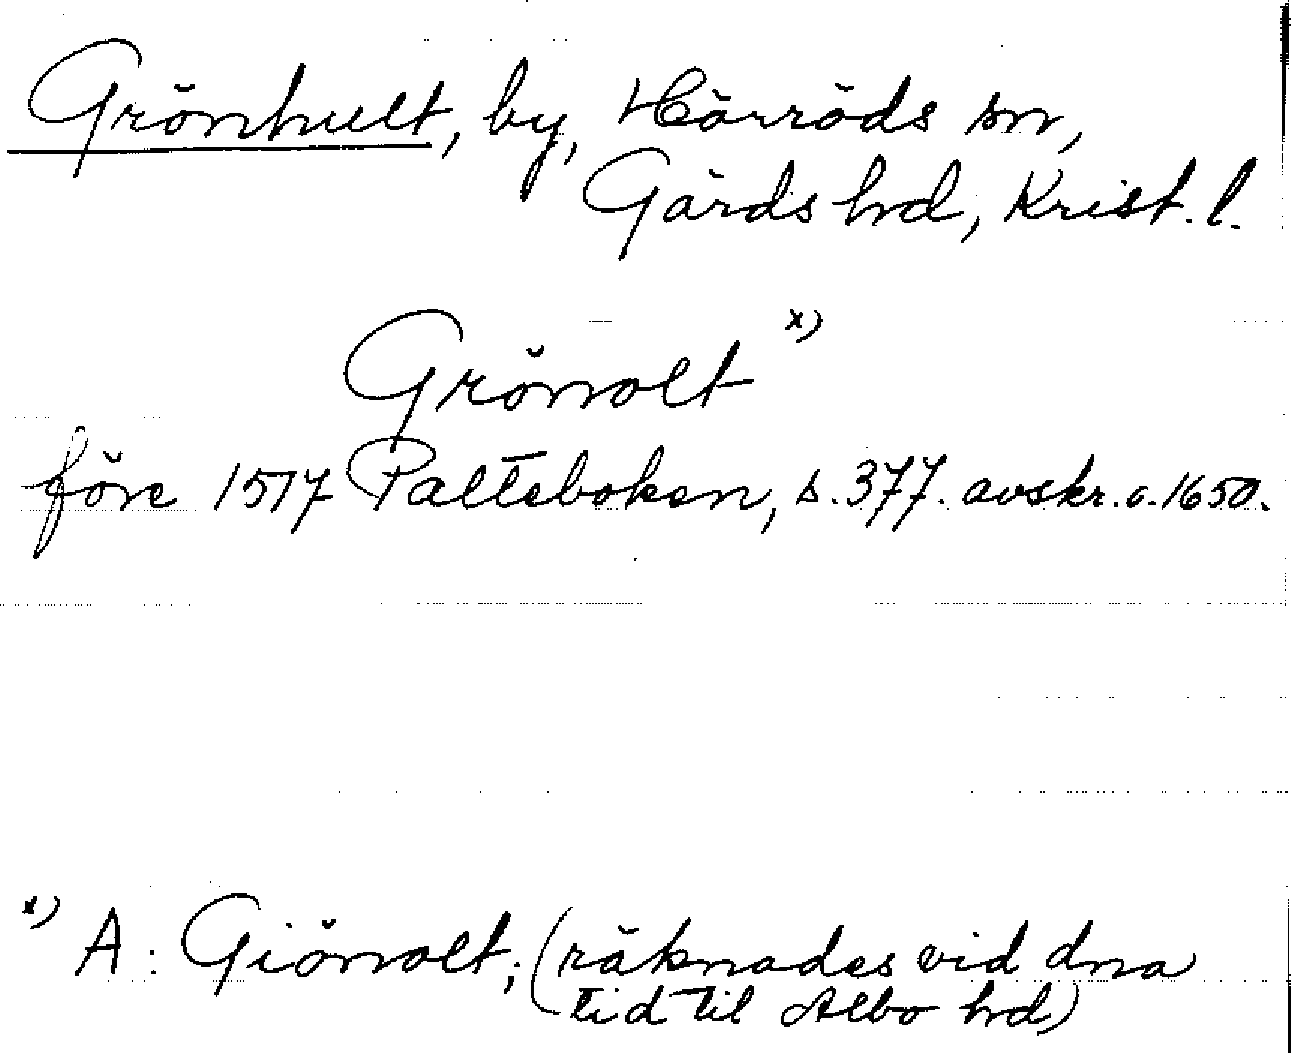 Grönhult, by, Hörröds sn,
Gärds hrd, Krist. l.
Grönolt x)
före 1517 Palteboken, s. 377. avskr. c. 1650.
x) A: Giönolt; (räknades vid dna
tid til Albo hrd)